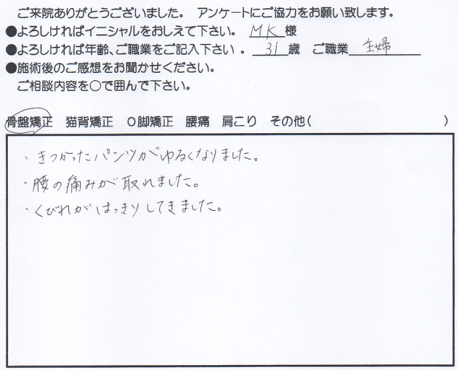 ご来院ありがとうございました。 アンケートにご協力をお願い致します。
●よろしければイニシャルをおしえて下さい。 MK 様
●よろしければ年齢、ご職業をご記入下さい 。 31 歳 ご職業 主婦
●施術後のご感想をお聞かせください。
ご相談内容を○で囲んで下さい。
骨盤矯正 猫背矯正 O脚矯正 腰痛 肩こり その他( )
・きつかったパンツがゆるくなりました。
・腰の痛みが取れました。
・くびれがはっきりしてきました。